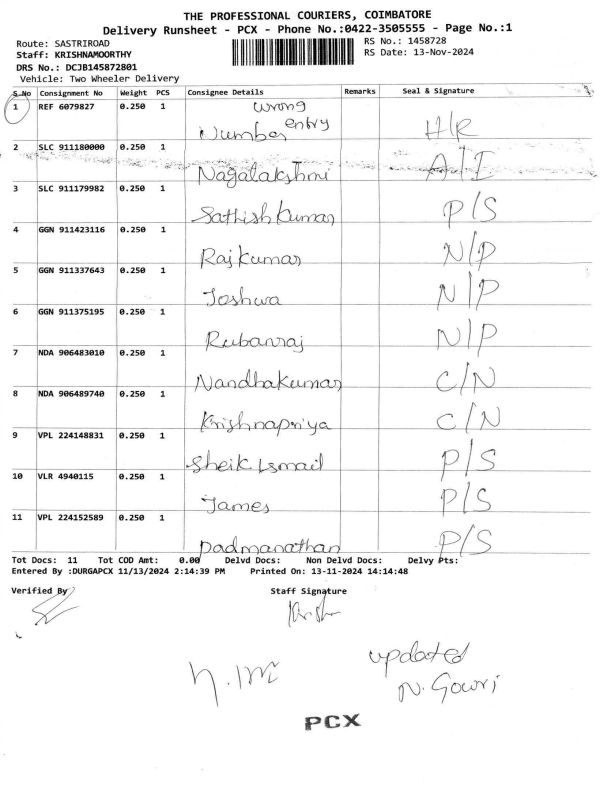 THE PROFESSIONAL COURIERS, COIMBATORE
Delivery Runsheet - PCX - Phone No.:0422-3505555 - Page No.:1
Route: SASTRIROAD RS No.: 1458728
Staff: KRISHNAMOORTHY RS Date: 13-Nov-2024
DRS No.: DCJB145872801
Vehicle: Two Wheeler Delivery
S.No Consignment No Weight PCS Consignee Details Remarks Seal & Signature
1 REF 6079827 0.250 1 wrong
Number entry H/R
2 SLC 911180000 0.250 1
Nagalakshmi A/I
3 SLC 911179982 0.250 1
Sathish Kumar P/S
4 GGN 911423116 0.250 1
Rajkumar N/P
5 GGN 911337643 0.250 1
Joshwa N/P
6 GGN 911375195 0.250 1
Rubanraj N/P
7 NDA 906483010 0.250 1
Nandhakumar C/N
8 NDA 906489740 0.250 1
Krishnapriya C/N
9 VPL 224148831 0.250 1
Sheik Ismail P/S
10 VLR 4940115 0.250 1
James P/S
11 VPL 224152589 0.250 1
Padmanathan P/S
Tot Docs: 11 Tot COD Amt: 0.00 Delvd Docs: Non Delvd Docs: Delvy Pts:
Entered By :DURGAPCX 11/13/2024 2:14:39 PM Printed On: 13-11-2024 14:14:48
Verified By Staff Signature
updated
N. Gowri
PCX